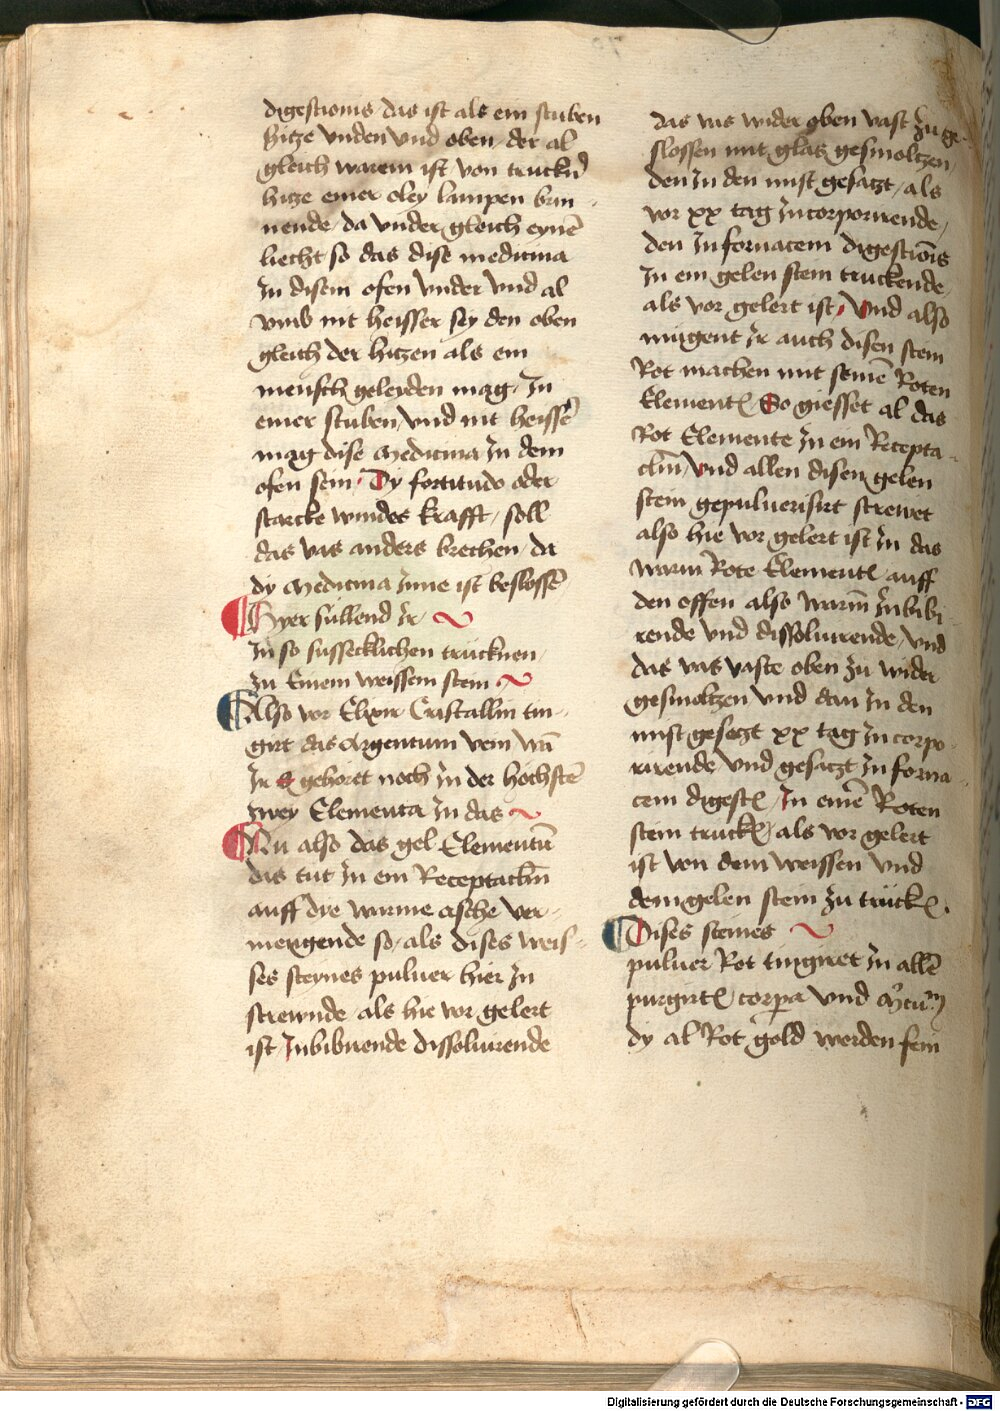 digestionis das ist als ein stuben
hitze vnden vnd oben, der al
gleich warem ist, von truckn̄
hitze einer oley lampen brin-
nende, da vnder gleich eynē
liecht so das dise medicina
In disem ofen vnder vnd al
vmb nit heisser sey den oben
gleich der hitzen als ein
mensch geleyden mag, In
einer stuben, vnd nit heissē
mag dise Medicina In dem
ofen sein, Dy fortitudo oder
starcke windes krafft, soll
das vas anders brechen, da
dy Medicina Inne ist beslossē
Hyer sullend Ir
In so sussecklichen trucknen,
zu Einem weissem stein
Also vor Elixir Cristallin tin-
girt das Argentum vom
Ir gehoret noch In der hochstē
zwey Elementa In das
Nu also das gel Elementū
das tut In ein Receptaclm̄
auff die warme asche ver-
mengende so, als dises weis-
ses steynes puluer hier In
strewnde als hie vor gelert
ist Inbibirende dissoluirende
das vas wider oben vast zu ge-
slossen mit glas gesmoltzen,
den In den mist gesatzt, als
vor xx tag Incorporirende,
den In fornacem digestiōis
In ein gelen stein truckende,
als vor gelert ist, Vnd also
mugent Ir auch disen stein
Rot machen mit seinē Roten
Element So giesset al das
Rot Elemente In ein Recepta-
clm̄ Vnd allen disen gelen
stein gepuluerisirt strewet
also hie vor gelert ist In das
warm Rote Element, auff
den offen also warm̄ Inbibi-
rende vnd dissoluirende, vnd
das vas vaste oben zu wider
gesmoltzen vnd dan In den
mist gesetzt xx tag Incorpo-
rirende vnd gesatzt In forna-
cem digest, In einē Roten
stein truck, als vor gelert
ist von dem weissen vnd
dem gelen stein zu trück.
Dises steines
puluer Rot tingiret In allē
purgirt corpora vnd
dy al Rot gold werden sein
Digitalisierung gefördert durch die Deutsche Forschungsgemeinschaft - DFG